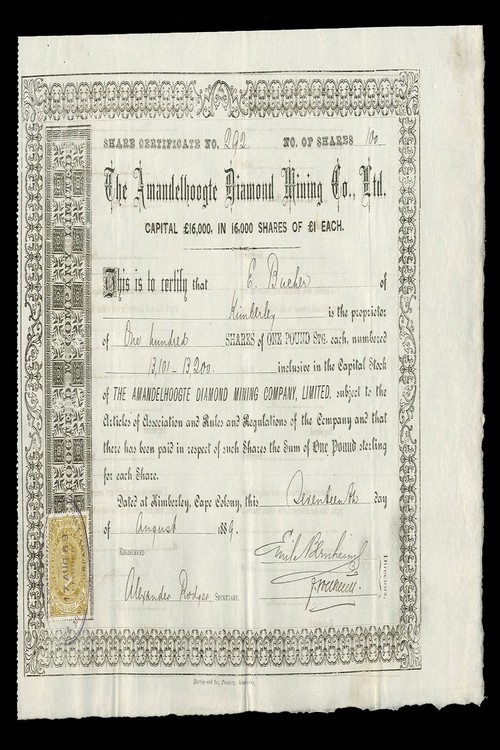 SHARE CERTIFICATE NO. 292 NO. OF SHARES 100
The Amandelhoogte Diamond Mining Co., Ltd.
CAPITAL £16,000, IN 16,000 SHARES OF £1 EACH.
This is to certify that E. Bucher of
Kimberley is the proprietor
of One hundred SHARES of ONE POUND STG. each, numbered
13,101 – 13,200 inclusive in the Capital Stock
of THE AMANDELHOOGTE DIAMOND MINING COMPANY, LIMITED, subject to the
Articles of Association and Rules and Regulations of the Company and that
there has been paid in respect of such Shares the Sum of One Pound sterling
for each Share.
Dated at Kimberley, Cape Colony, this Seventeenth day
of August 1889.
REGISTERED
Alexander Rodger SECRETARY.
DIRECTORS